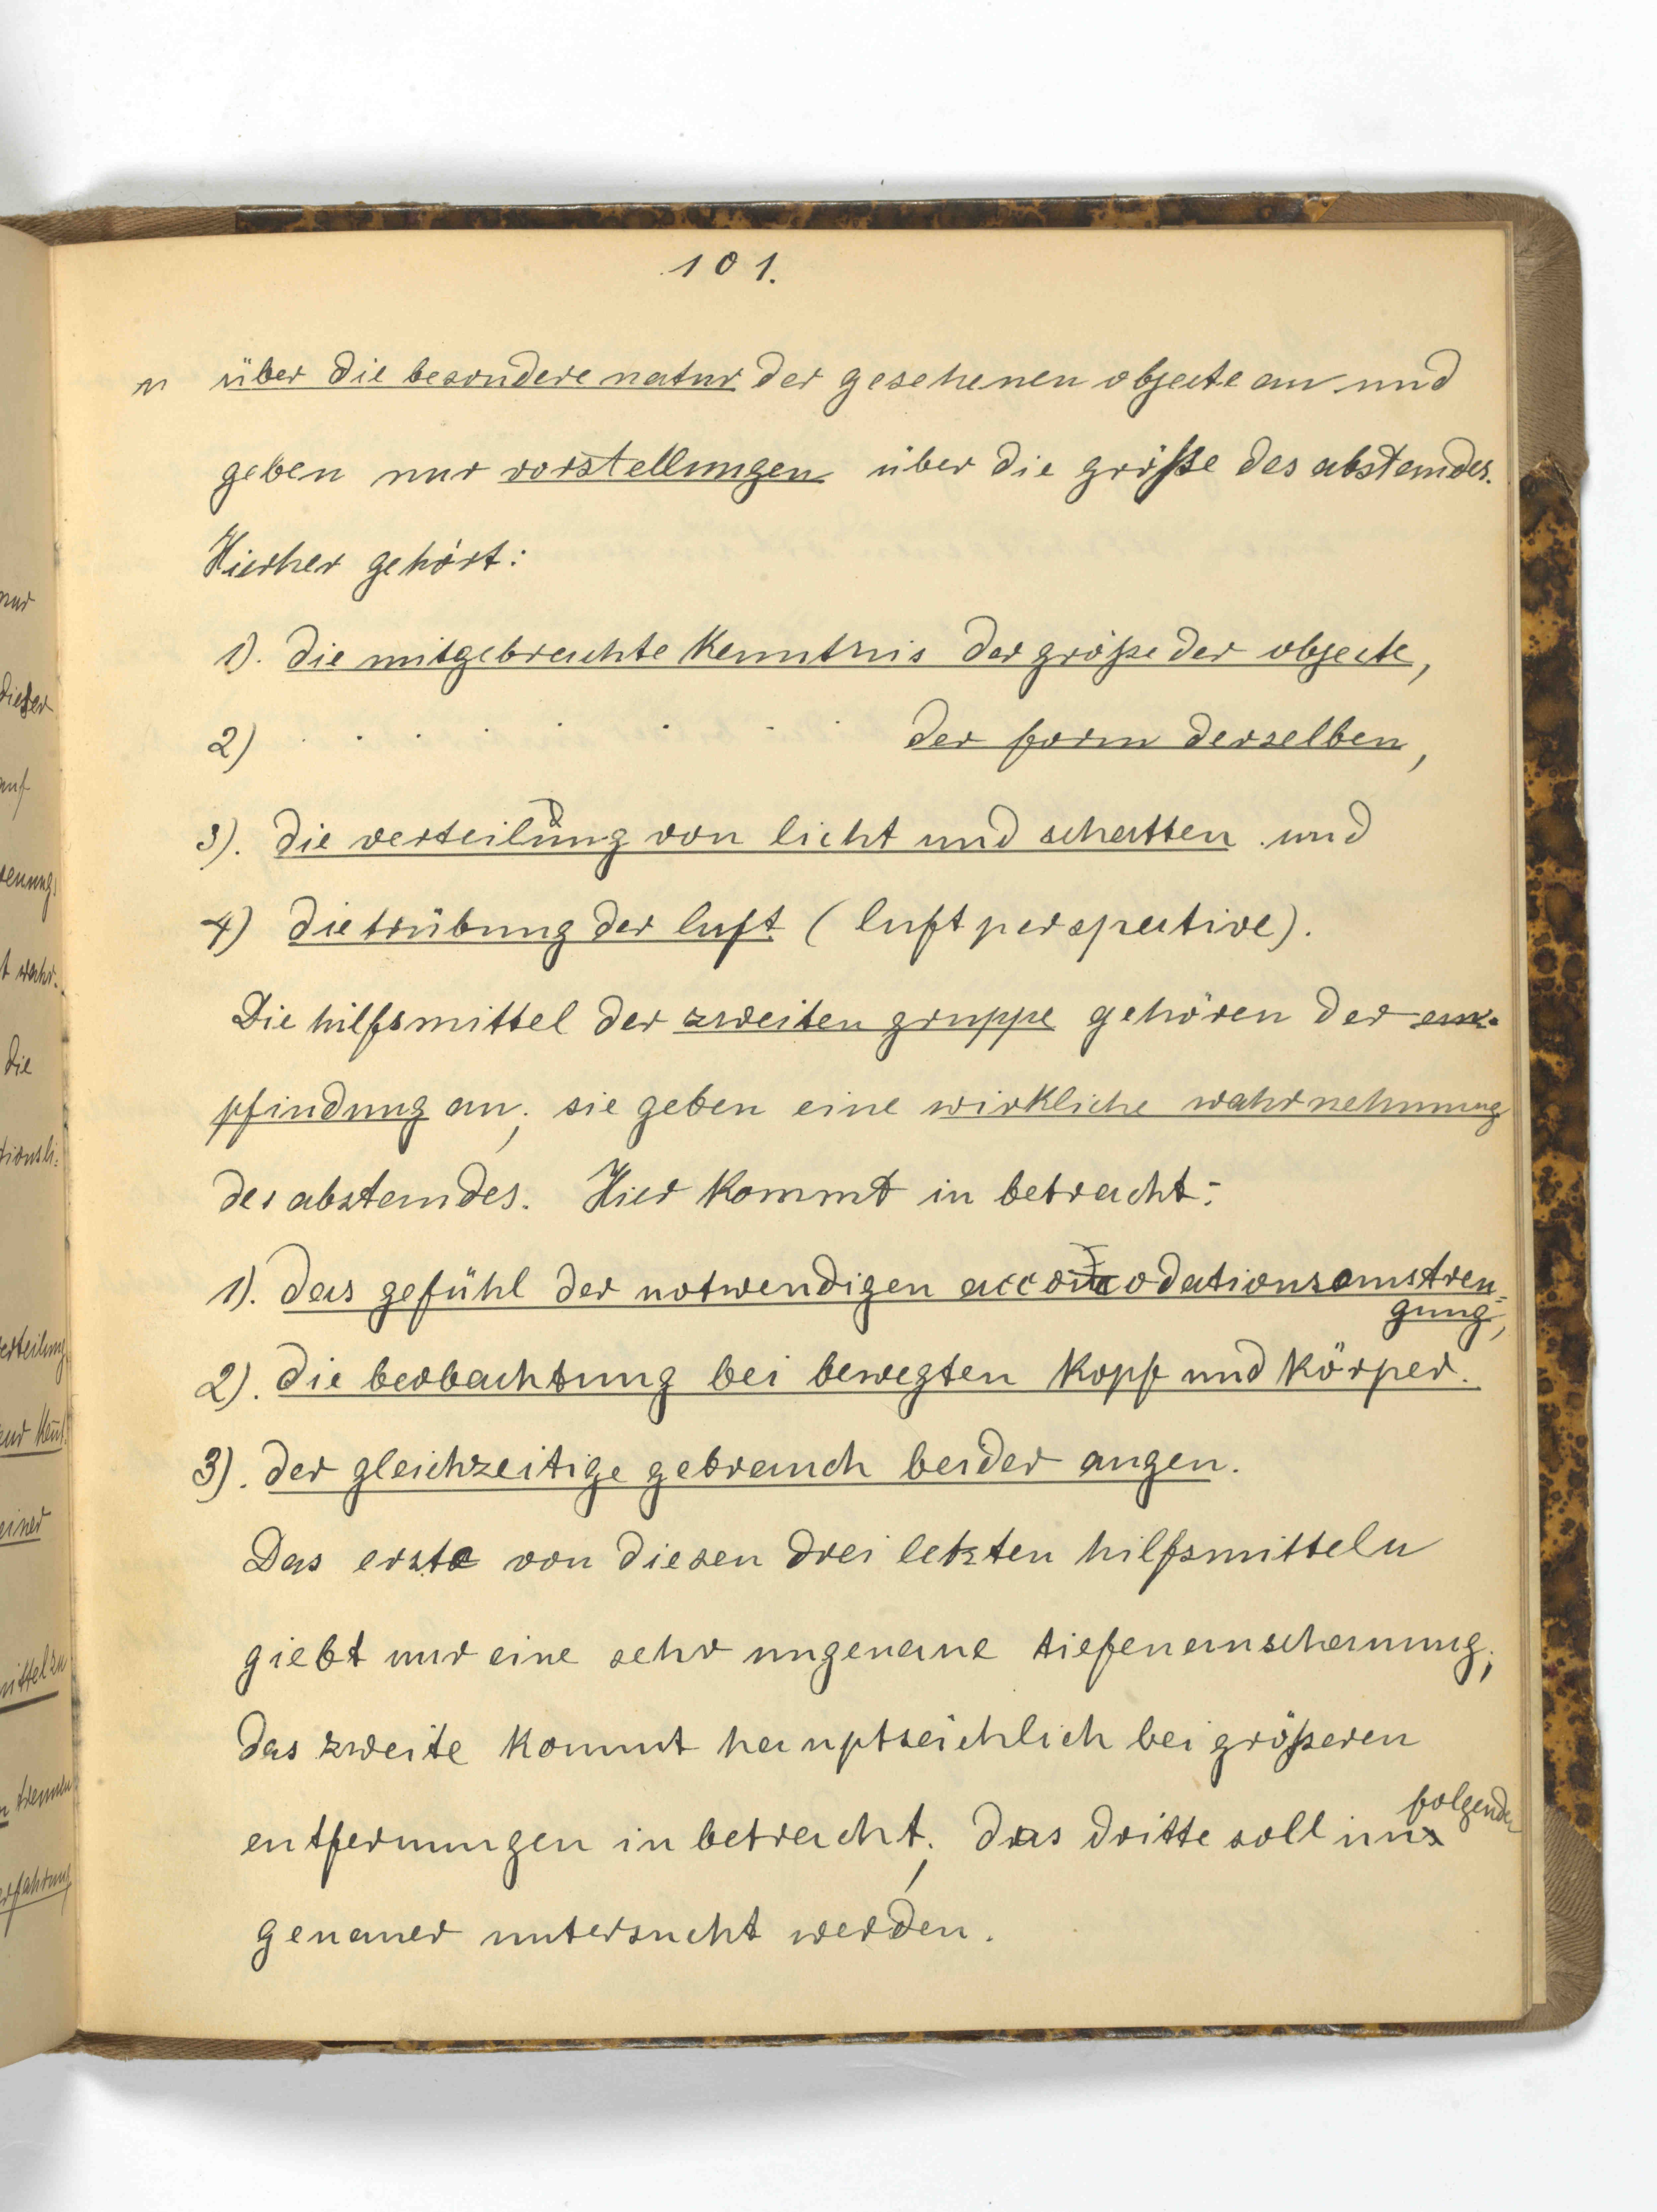 101.
n über die besondere natur der gesehenen objecte an und
geben nur vorstellungen über die größe des abstandes.
Hierher gehört:
1). die mitgebrachte Kenntnis der größe der objecte,
2) . . . . . . . der form derselben,
3). die verteilung von licht und schatten und
4) die trübung der luft (luftperspective).
Die hilfsmittel der zweiten gruppe gehören der em-
pfindung an; sie geben eine wirkliche wahrnehmung
des abstandes. Hier kommt in betracht:
1). das gefühl der notwendigen accom̅odationsanstren=
gung,
2). die beobachtung bei bewegten Kopf und Körper.
3). der gleichzeitige gebrauch beider augen.
Das erste von diesen drei letzten hilfsmitteln
giebt nur eine sehr ungenaue tiefenanschauung;
das zweite kommt hauptsächlich bei größeren
folgenden
entfernungen in betracht; das dritte soll im
genauer untersucht werden.
nur
dieser
auf
die
verteilung
einer
mittel zu
trennen
erfahrung